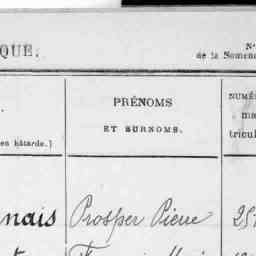 QUE.
N°
de la Nomen
PRÉNOMS
NUMÉ
ET SURNOMS.
ma
en bâtarde.)
tricul
nais Prosper Pierre 25